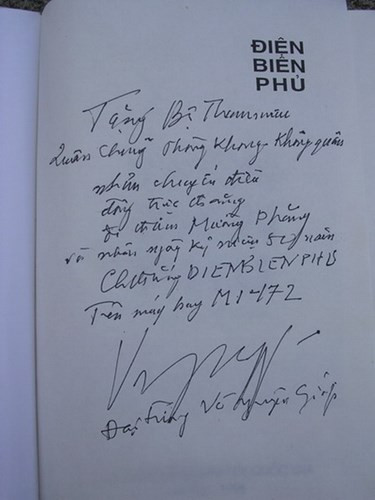 ĐIỆN
BIÊN
PHỦ
Tặng Bộ Tham mưu
Quân chủng Phòng Không - Không quân
nhân chuyến
trực thăng
đi thăm Mường Phăng
và nhân ngày kỷ niệm 50 năm
Ch thắng DIENBIENPHU
Trên máy bay MI 472
Đại tướng Võ Nguyên Giáp